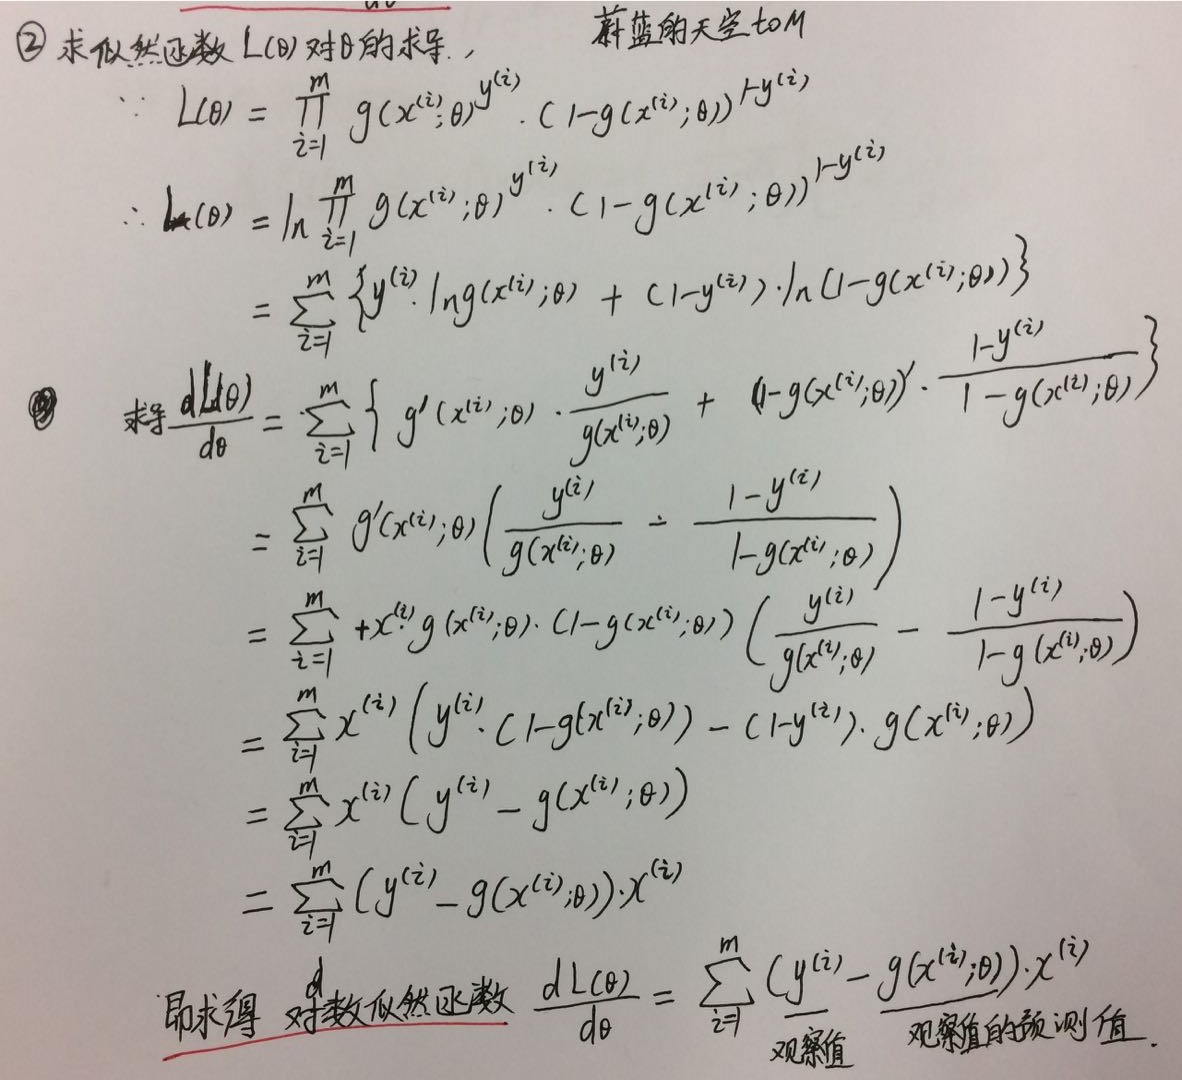 ② 求似然函数 L(θ) 对θ的求导., 蔚蓝的天空toM
∵ L(θ) = ∏_{i=1}^{m} g(x^{(i)};θ)^{y^{(i)}} · (1-g(x^{(i)};θ))^{1-y^{(i)}}
∴ L(θ) = ln ∏_{i=1}^{m} g(x^{(i)};θ)^{y^{(i)}} · (1-g(x^{(i)};θ))^{1-y^{(i)}}
= ∑_{i=1}^{m} {y^{(i)}·ln g(x^{(i)};θ) + (1-y^{(i)})·ln(1-g(x^{(i)};θ))}
求导 \frac{dL(θ)}{dθ} = ∑_{i=1}^{m} { g'(x^{(i)};θ) · \frac{y^{(i)}}{g(x^{(i)};θ)} + (1-g(x^{(i)};θ))' · \frac{1-y^{(i)}}{1-g(x^{(i)};θ)} }
= ∑_{i=1}^{m} g'(x^{(i)};θ) ( \frac{y^{(i)}}{g(x^{(i)};θ)} - \frac{1-y^{(i)}}{1-g(x^{(i)};θ)} )
= ∑_{i=1}^{m} +x^{(i)}·g(x^{(i)};θ)·(1-g(x^{(i)};θ)) ( \frac{y^{(i)}}{g(x^{(i)};θ)} - \frac{1-y^{(i)}}{1-g(x^{(i)};θ)} )
= ∑_{i=1}^{m} x^{(i)} (y^{(i)}·(1-g(x^{(i)};θ)) - (1-y^{(i)})·g(x^{(i)};θ))
= ∑_{i=1}^{m} x^{(i)} (y^{(i)} - g(x^{(i)};θ))
= ∑_{i=1}^{m} (y^{(i)} - g(x^{(i)};θ))·x^{(i)}
即求得 对数似然函数 \frac{dL(θ)}{dθ} = ∑_{i=1}^{m} (y^{(i)} - g(x^{(i)};θ))·x^{(i)}
观察值 观察值的预测值.